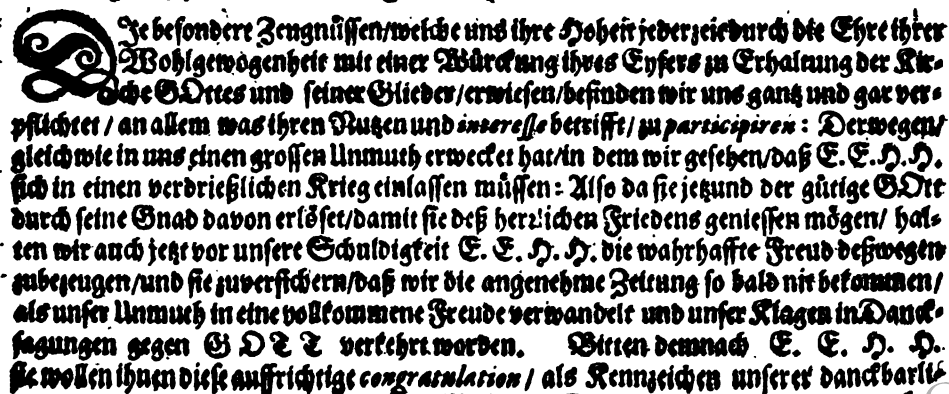 DJe besondere Zeugnüssen/welche uns ihre Hoheit jederzeit durch die Ehre ihrer
Wohlgewogenheit mit einer Würckung ihres Eyfers zu Erhaltung der Kir-
che GOttes und seiner Glieder/erwiesen/befinden wir uns gantz und gar ver-
pflichtet / an allem was ihren Nutzen und interesse betrifft / zu participiren : Derwegen/
gleich wie in uns einen grossen Unmuth erwecket hat/in dem wir gesehen/daß E.E.H.H.
sich in einen verdrießlichen Krieg einlassen müssen: Also da sie jetzund der gütige GOtt
durch seine Gnad davon erlöset/damit sie deß herzlichen Friedens geniessen mögen/ hal-
ten wir auch jetzt vor unsere Schuldigkeit E. E. H. H. die wahrhaffte Freud deßwegen
zubezeugen/und sie zuversichern/daß wir die angenehme Zeitung so bald nit bekommen/
als unser Unmuth in eine vollkommene Freude verwandelt und unser Klagen in Danck-
sagungen gegen GOTT verkehrt worden. Bitten demnach E. E. H. H.
sie wollen ihnen diese auffrichtige congratulation / als Kennzeichen unserer danckbarli-